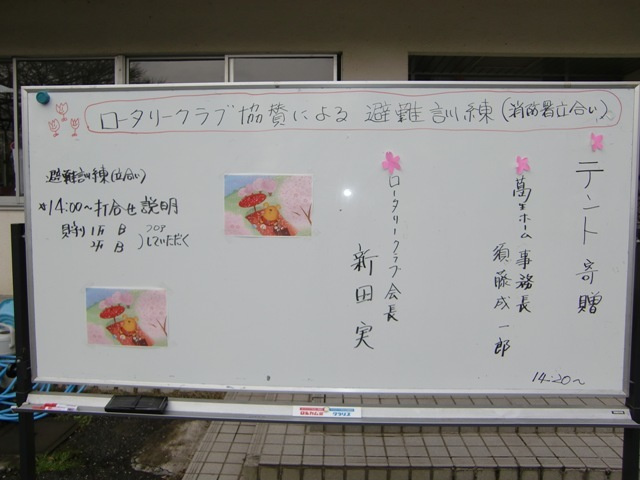 ロータリークラブ協賛による 避難訓練(消防署立合い)
テント寄贈
萬生ホーム 事務長
須藤成一郎
ロータリークラブ会長
新田 実
14:20~
避難訓練(立合い)
14:00~打合せ説明
していただく